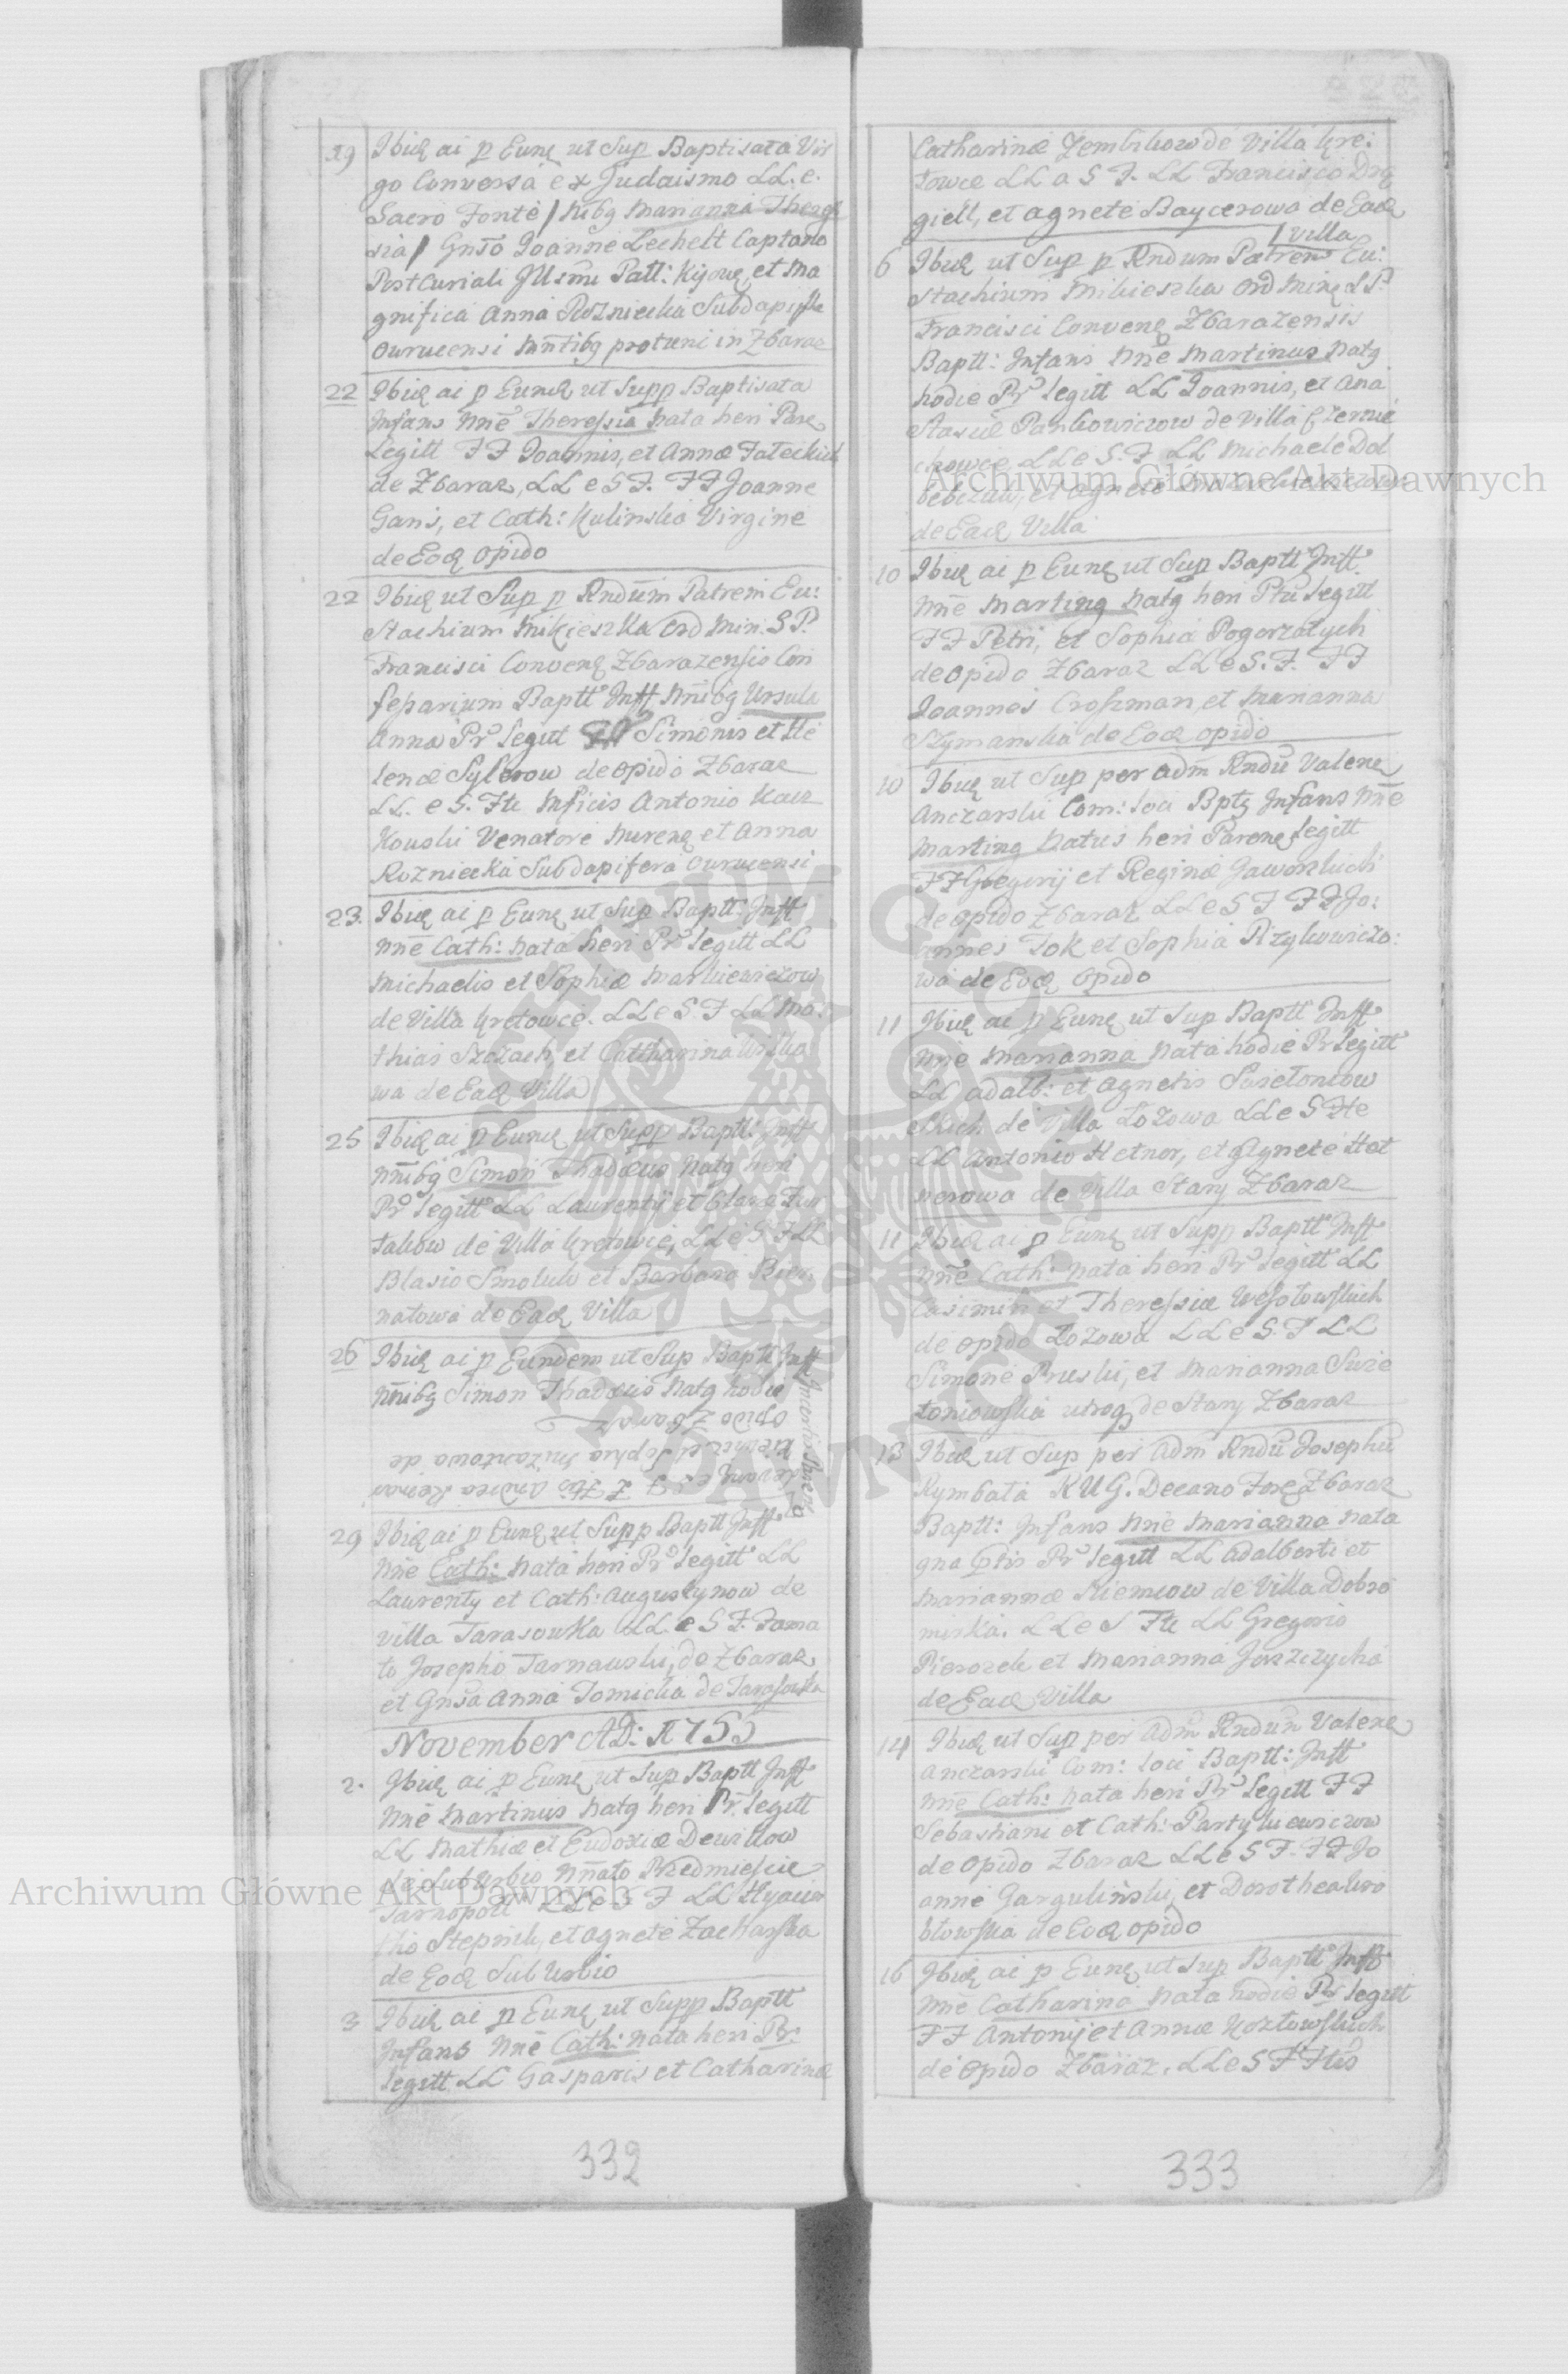 19 Ibid ai p Eund ut Sup Baptisata Vir
go Conversa ex Judaismo LL. e.
Sacro Fonte / Nibg Marianna There
sia / Gnso Joanne Lechelt Captano
Post Curiali Illsmi Patt: Kijov et Ma
gnifica Anna Rozniecka Subdapifera
Owrucensi mntibg pro tunc in Zbaraz
22 Ibid ai p Eund ut Supp Baptisata
Infans Nne Theressia Nata heri Pare
Legitt FF Joannis, et Annæ Fateckich
de Zbaraz, LL e S F. FF Joanne
Gans, et Cath: Kulinska Virgine
de Eod Opido
22 Ibid ut Sup p Rndum Patrem Eu:
stachium Mikieszka Ord Min. S P.
Francisci Conven Zbarazensis Con
Baptt Inff Nnibg Ursula
Anna Pr Legitt Simonis et He
lenæ Sylerow de Opido Zbaraz
LL. e S. Fte Mficis Antonio
Venatore et Anna
Rozniecka Subdapifera Owrucensi
23. Ibid ai p Eund ut Sup Baptt: Inff
Nne Cath: Nata heri Pr Legitt LL
Michaelis et Sophiæ Markiewiczow
de Villa Kretowce. LL e S. F LL Ma:
thias et Cattharina
wa de Ead Villa
25 Ibid ai p Eund ut Supp Baptt: Inff
Nnibg Simon Thadæus Natg heri
Pr Legitt LL Laurentij et Claræ
de Villa Kretowce, LL e S F LL
Blasio Smoluk et Barbara Bier
natowa de Ead Villa
26 Ibid ai p Eundem ut Sup Baptt Inff
Nnibg Simon Thadæus Natg hodie
Opido Zbaraz
et Sophia de
e S F Fte Andrea
29 Ibid ai p Eund ut Supp Baptt Inff
Nne Cath: Nata heri Pr Legitt LL
Laurenty et Cath: Augustynow de
Villa Tarasowka LL e S F. Fama
to Josepho Tarnawski, de Zbaraz
et Gnsa Anna Tomicka de Tarasowka
November AD: 1755
2. Ibid ai p Eund ut Sup Baptt Inff
Nne Martinus Natg heri Pr. Legitt
LL Mathiæ et Eudoxiæ Dewitkow
de Suburbio Nnato Przedmiescie
Tarnopoli LL e S F LL Hyacin
tho Stepnik, et Agnete Zacharska
de Eod Sub Urbio
3 Ibid ai p Eund ut Supp Baptt
Infans Nne Cath: Nata heri Pr:
Legitt LL Gasparis et Catharinæ
332
Catharinæ Zembikow de Villa Kre:
towce LL a S F. LL Francisco Drg
giell, et Agnete Baycerowa de Ead
Villa
6 Ibid ut Sup p Rndum Patrem Eu:
stachium Mikieszka Ord Min S P.
Francisci Conven Zbarazensis
Baptt: Infans Nne Martinus Natg
hodie Pr Legitt LL Joannis, et Ana
stasiæ Pankowiczow de Villa Czernie
chowce LL e S. F LL Michaele Dol
et Agnete
de Ead Villa
10 Ibid ai p Eund ut Sup Baptt Inff.
Nne Marting Natg heri Ptu Legitt
FF Petri, et Sophia Pogorzalych
de Opido Zbaraz LL e S. F. FF
Joannes Crossman et Marianna
Szymanska de Eod Opido
10 Ibid ut Sup per Adm Rndu Valent
Anczarski Com: Loci Bptg Infans Nne
Marting Natus heri Paren Legitt
FF Gregorij et Reginæ Jaworskich
de Opido Zbaraz LL e S F FF Jo:
annes Tok et Sophia Rzykowiczo:
wa de Eod Opido
11 Ibid ai p Eund ut Sup Baptt Inff
Nne Marianna Nata hodie Pr Legitt
LL Adalb: et Agnetis Swietoniow
skich de Villa Lozowa LL e S Fte
LL Antonio Hetner, et Agnete Het
nerowa de Villa Stary Zbaraz
11 Ibid ai p Eund ut Supp Baptt Inff
Nne Cath: Nata heri Pr Legitt LL
Casimiri et Theressiæ Wesolowskich
de Opido Lozowa LL e S. F LL
Simone Pruski, et Marianna Swie
toniowska utrog de Stary Zbaraz
13 Ibid ut Sup per Adm Rndu Josephu
Rymbala K U G. Decano Fore Zbaraz
Baptt: Infans Nne Marianna Nata
Pr Legitt LL Adalberti et
Mariannæ Niemcow de Villa Dobro
mirka. LL e S Fte LL Gregorio
Pierozek et Marianna
de Ead Villa
14 Ibid ut Sup per Adm Rndum Valent
Anczarski Com: Loci Baptt: Inff
Nne Cath: Nata heri Pr Legitt FF
Sebastiani et Cath: Partykiewiczow
de Opido Zbaraz LL e S F. FF Jo
anne Gargulinski, et Dorothea Wro
blowska de Eod Opido
16 Ibid ai p Eund ut Sup Baptt Inff
Nne Catharina Nata hodie Pr Legitt
FF Antonij et Annæ Kozlowskich
de Opido Zbaraz. LL e S F Ftis
333
Archiwum Główne Akt Dawnych
Archiwum Główne Akt Dawnych
ARCHIWUM GŁÓWNE AKT DAWNYCH